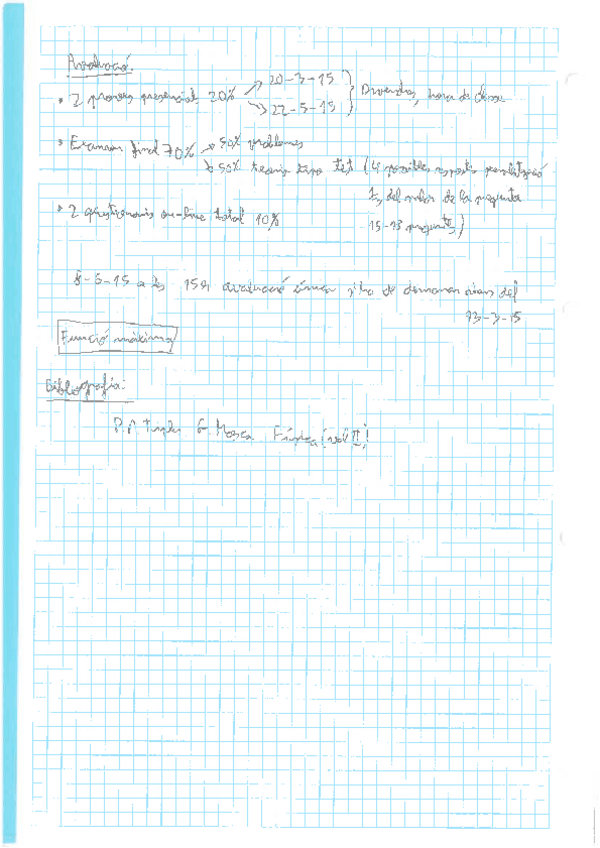 Avaluació:
• 2 proves presencials 20% → 20-3-15
→ 22-5-15 } Divendres, hora de classe
• Examen final 70% → 50% problemes
↳ 50% teoria tipo test (4 possibles respostes penalització
del valor de la pregunta
• 2 qüestionaris on-line total 10%
15-13 preguntes)
8-5-15 a les 15h avaluació única s'ha de demanar abans del
13-3-15
Funció màxima
Bibliografia:
P.A Tipler G Mosca Física (vol II)